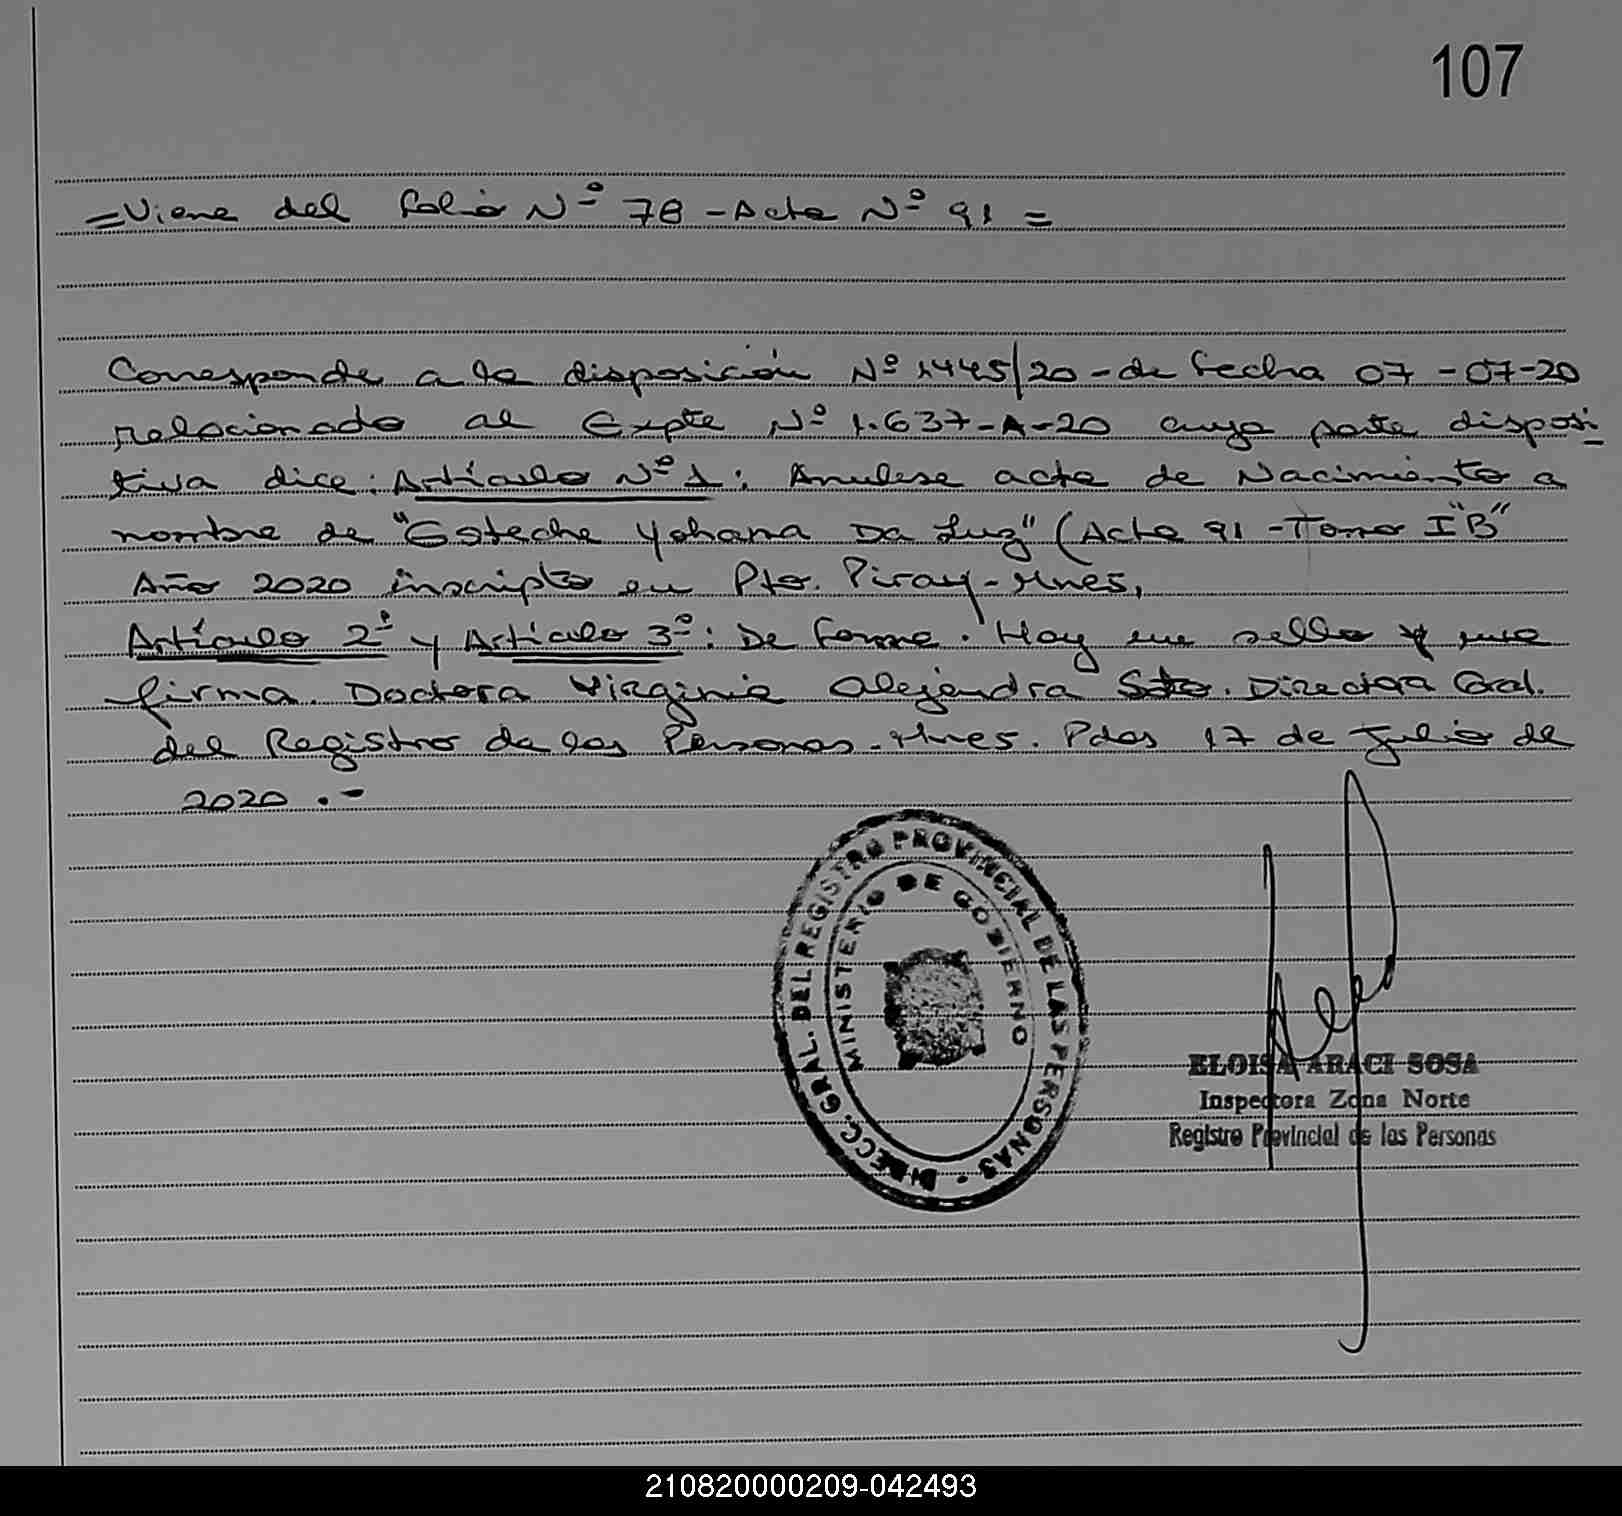 107
=Viene del folio Nº 78 - Acta Nº 91 =
Corresponde a la disposición Nº 1445/20 - de fecha 07-07-20
relacionado al Expte Nº 1.637-A-20 cuya parte disposi-
tiva dice: Artículo Nº 1: Anulese acta de Nacimiento a
nombre de "Esteche Yohana Da Luz" (Acta 91 - Tomo I "B"
Año 2020 inscripto en Pto. Piray - Mnes,
Artículo 2º y Artículo 3º: De forma. Hay un sello y una
firma. Doctora Virginia Alejandra Soto. Directora Gral.
del Registro de las Personas - Mnes. Pdas 17 de Julio de
2020 .-
DIRECC. GRAL. DEL REGISTRO PROVINCIAL DE LAS PERSONAS -
MINISTERIO DE GOBIERNO
ELOISA ARACI SOSA
Inspectora Zona Norte
Registro Provincial de las Personas
210820000209-042493